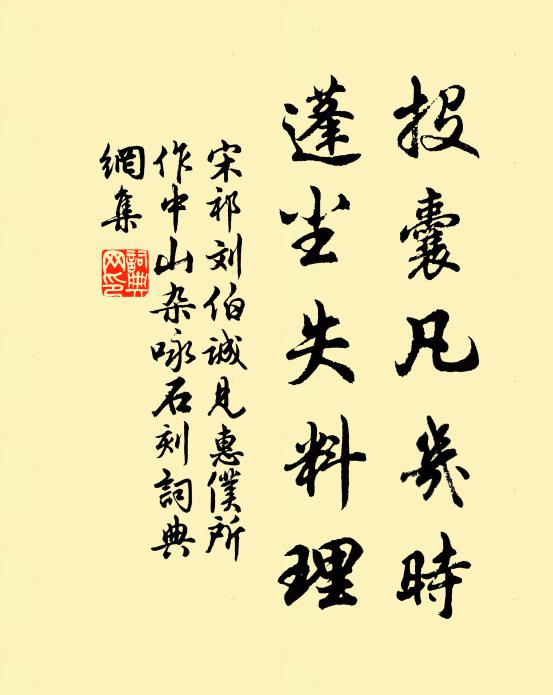 投囊凡幾時
蓬尘失料理
宋祁刘伯诚見惠僕所
作中山杂咏石刻詞典
網集
詞典
网印